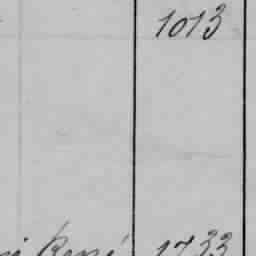 1013
René 1733